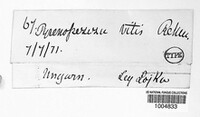 67 Pyrenopeziza Vitis Rehm
7/7/71.
TYPE
Ungarn. Leg Lojka
US NATIONAL FUNGUS COLLECTIONS
1004833